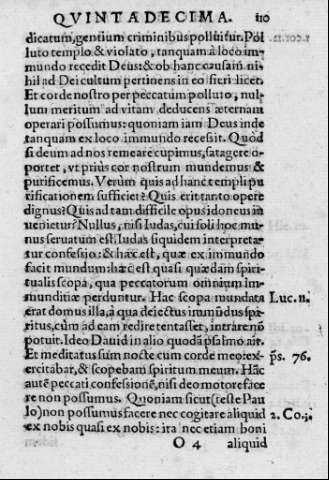 QVINTADECIMA. 110
dicatum, gentium criminibus polluitur. Pol
luto templo & violato, tanquam à loco im-
mundo recedit Deus: & ob hanc causam ni-
hil ad Dei cultum pertinens in eo fieri licet.
Et corde nostro per peccatum polluto, nul-
lum meritum ad vitam deducens æternam
operari possumus: quoniam iam Deus inde
tanquam ex loco immundo recessit. Quòd
si deum ad nos remeare cupimus, satagere o-
portet, vt prius cor nostrum mundemus &
purificemus. Verùm quis ad hanc templi pu
rificationem sufficiet? Quis erit tanto opere
dignus? Quis ad tam difficile opus idoneus in
uenietur? Nullus, nisi Iudas, cui soli hoc mu-
nus seruatum est. Iudas siquidem interpreta-
tur confessio: & hæc est, quæ ex immundo
facit mundum: hæc est quasi quædam spiri-
tualis scopa, qua peccatorum omnium im-
munditiæ perduntur. Hac scopa mundata
Luc. 11.
erat domus illa, à qua deiectus īmũdus spi-
ritus, cùm ad eam redire tentasset, intrare nõ
potuit. Ideo Dauid in alio quodã psalmo ait.
Et meditatus sum nocte cum corde meo: ex-
ps. 76.
ercitabar, & scopebam spiritum meum. Hãc
autē peccati confessionē, nisi deo motore face
re non possumus. Quoniam sicut (teste Pau
lo) non possumus facere nec cogitare aliquid
2. Co. 3.
ex nobis quasi ex nobis: ita nec etiam boni
O 4 aliquid